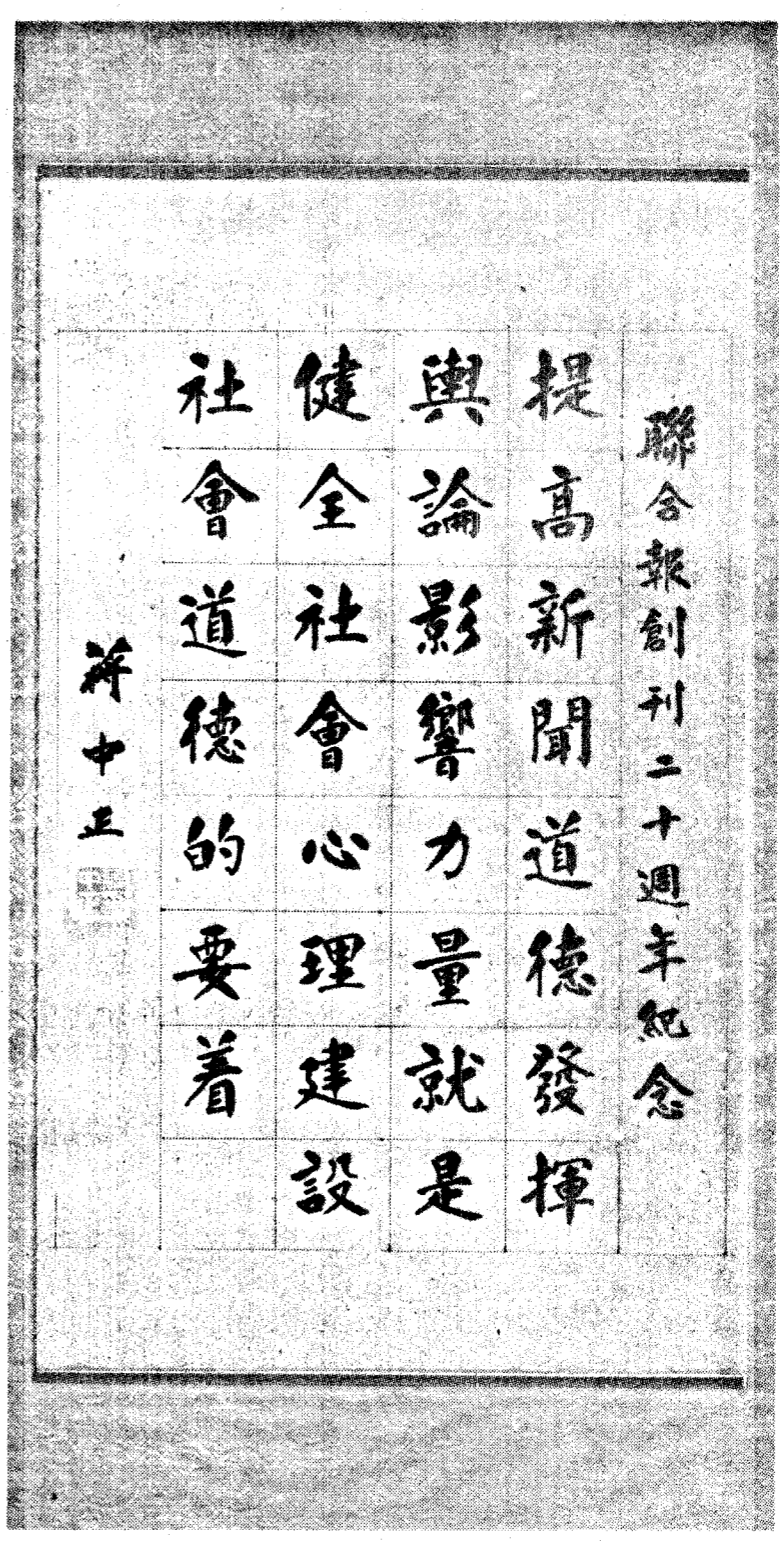 聯合報創刊二十週年紀念
提高新聞道德發揮
輿論影響力量就是
健全社會心理建設
社會道德的要着
蔣中正